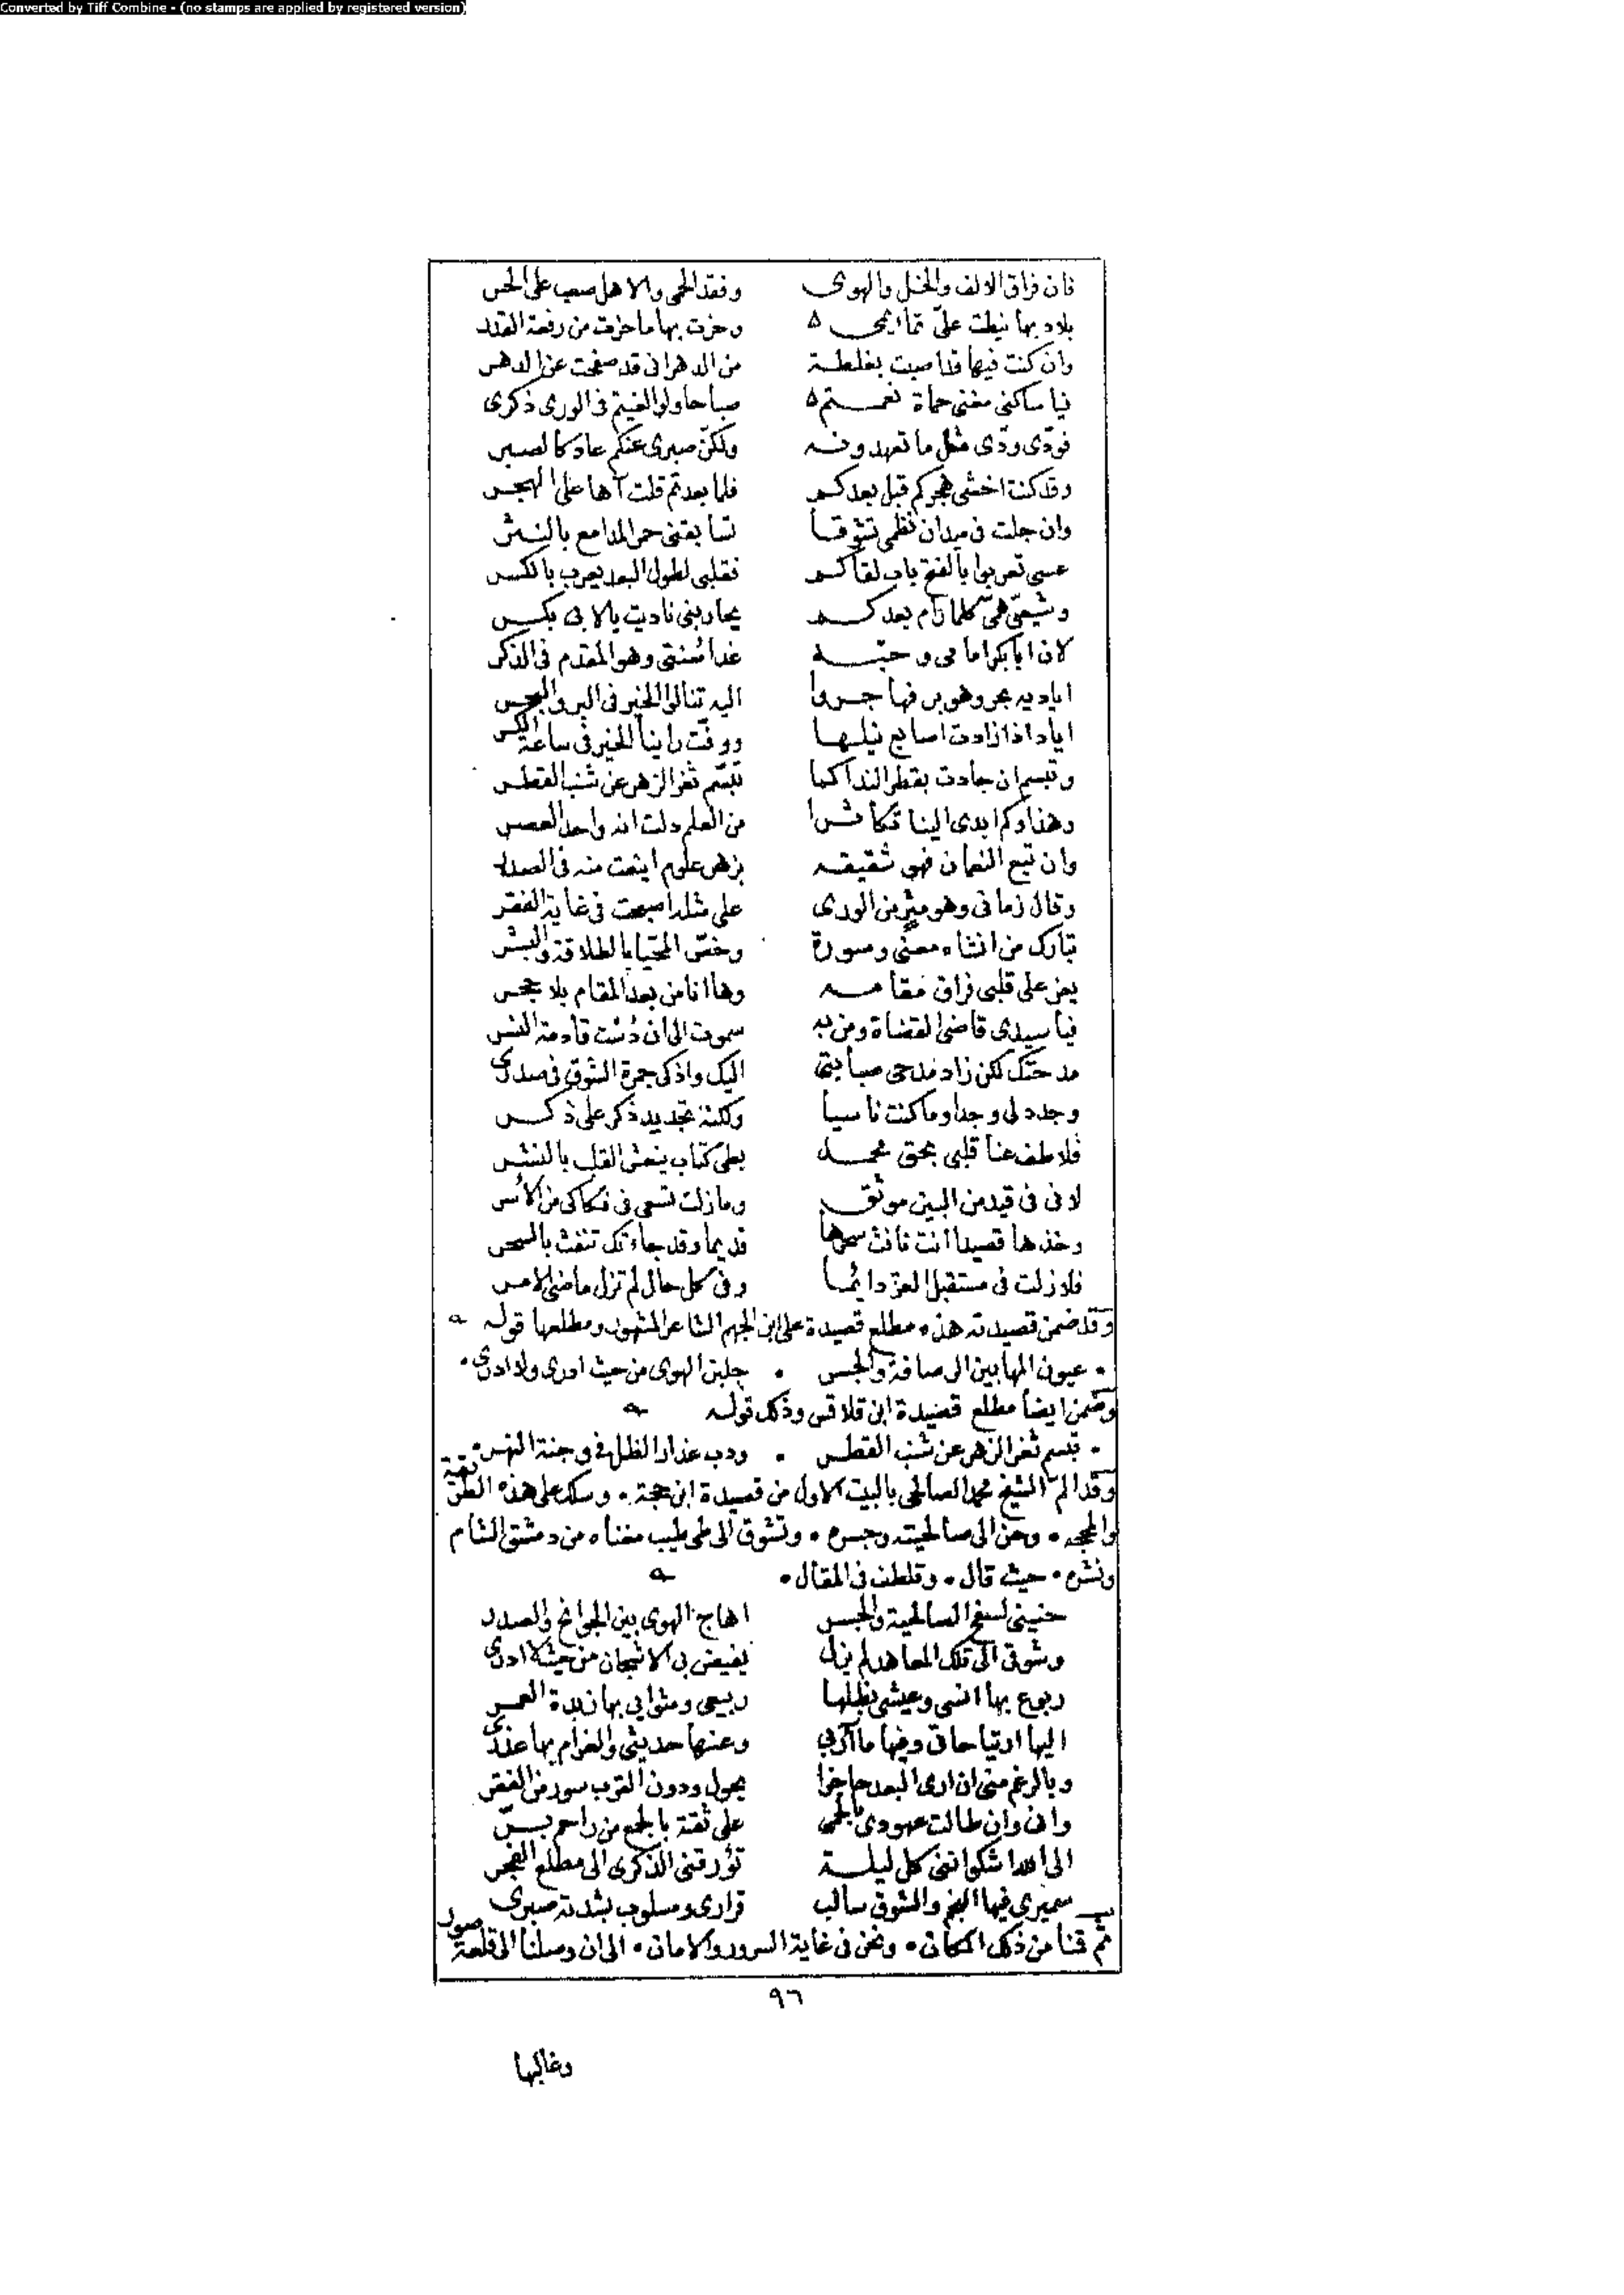 Converted by Tiff Combine - (no stamps are applied by registered version)
فان فراق الالف والخل والهوى وفقد الحمى والاهل صعب على الحر
بلاد بها نيطت علىّ تمائمى وحزت بها ما حزت من رفعة القدر
وان كنت فيها قد اصبت بغلطة من الدهر انى قد صفحت عن الدهر
فيا ساكنى مغنى حماة نعمتم صباحا ولو الغيتم فى الورى ذكرى
فودّى ودّى مثل ما تعهدونه ولكنّ صبرى عنكم عاد كالصبر
وقد كنت اخشى هجركم قبل بعدكم فلما بعدتم قلت آها على الهجر
وان جلت فى ميدان نظمى تشوقا تسابقنى حمر المدامع بالنثر
عسى تعربوا بالفتح باب لقاكم فقلبى لطول البعد يعرب بالكسر
وشيعىّ همّى كلما رام بعدكم يحاربنى ناديت يالابى بكر
لان ابا بكر امامى وحبّه غدا سنتى وهو المقدم فى الذكر
اياديه بحر وهو بر فها جروا اليه تنالوا الخير فى البر والبحر
اياد اذا زادت اصابع نيلها ووفت راينا الخير فى ساعة الكسر
وتبسم ان جادت بقطر الندا كما تبسّم ثغر الزهر عن شنب القطر
وهذا وكم ابدى الينا تكاثرا من العلم دلت انه واحد العصر
وان تبع النعمان فهو شقيقه بزهر علوم اينعت منه فى الصدر
وقال زمانى وهو مثر من الورى على مثله اصبحت فى غاية الفقر
تبارك من انشاه معنى وصورة وخصّ المحيّا بالطلاقة والبشر
يعز على قلبى فراق مقامه وها انا من بعد المقام بلا حجر
فيا سيدى قاضى القضاة ومن به سموت الى ان دست قادمة النسر
مدحتك لكن زاد مدحى صبابتى اليك واذكى جمرة الشوق فى صدرى
وجدد لى وجدا وما كنت ناسيا ولكنه تجديد ذكر على ذكر
فلاطف عنا قلبى بحق محمد بطى كتاب ينعش القلب بالنشر
لانى فى قيد من البين موثق وما زلت تسعى فى فكاكى من الأسر
وخذها قصيدا انت نافث سحرها قديما وقد جاءتك تنفث بالسحر
فلا زلت فى مستقبل العز دائما وفى كل حال لم تزل ماضى الامر
وقد ضمن قصيدته هذه مطلع قصيدة على ابن الجهم الشاعر المشهور ومطلعها قوله
عيون المها بين الرصافة والجسر • جلبن الهوى من حيث ادرى ولا ادرى •
وضمن ايضا مطلع قصيدة ابن قلاقس وذلك قوله
• تبسم ثغر الزهر عن شنب القطر • ودب عذار الظل فى وجنة النهر •
وقد الم الشيخ محمد الصالحى بالبيت الاول من قصيدة ابن حجة • وسلك على هذه الطريقة
والمحجه • وحن الى صالحيته وجسره • وتشوق الى طى طيب مغناه من دمشق الشام
ونشره • حيث قال • وتلطف فى المقال •
حنينى لسفح الصالحية والجسر اهاج الهوى بين الجوانح والصدر
وشوقى الى تلك المعاهد لم يزل يفيض بى الاشجان من حيث لا ادرى
ربوع بها انسى وعيشى بظلها ربيعى ومثوايى بها زبدة العمر
اليها ارتياحاتى وفيها مآربى وعنها حديثى والغرام بها عذرى
وبالرغم منى ان ارى البعد حاجزا يحول ودون القرب سور من الفقر
وانى وان طالت عهودى بالحمى على ثقة بالجمع من راحم برّ
الى الله اشكو اننى كل ليلة تؤرقنى الذكرى الى مطلع الفجر
سميرى فيها النجم والشوق سالب قرارى ومسلوب بشدته صبرى
ثم قمنا من ذلك المكان • ونحن فى غاية السرور والامان • الى ان وصلنا الى قلعة
٩٦
وغالبها